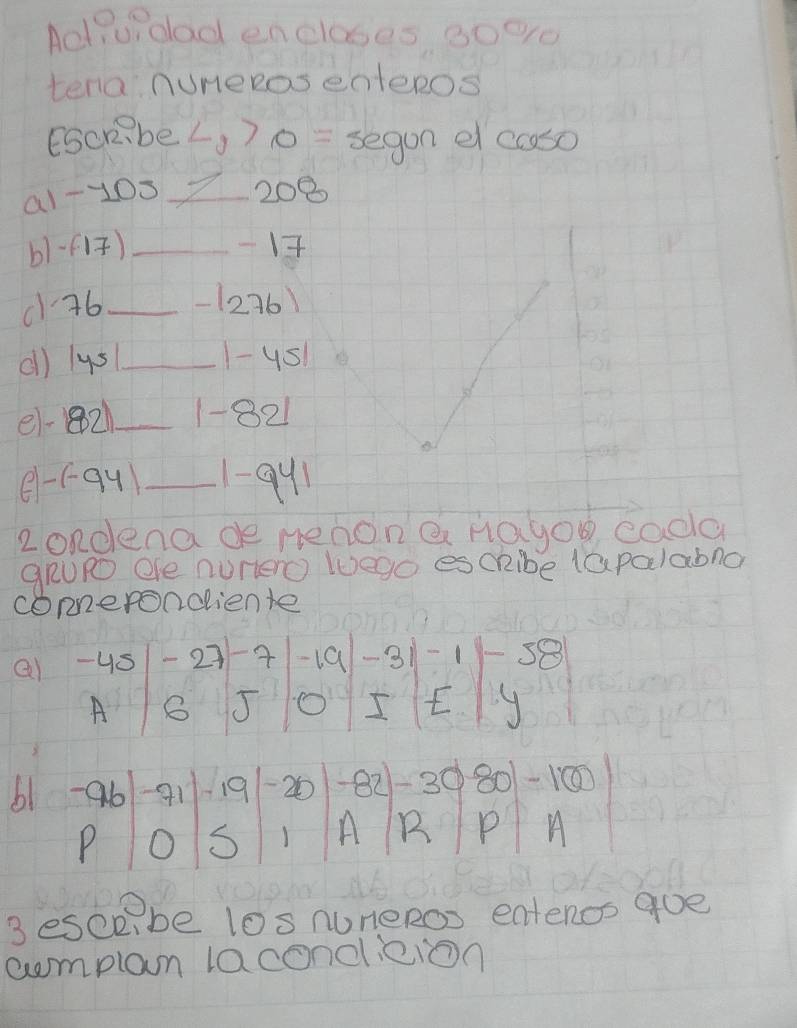 Actividad en clases 30%
tema: numeros enteros
Escribe <, > o = segun el caso
a) -105 > 208
b) -(17) ____ -17
c) -76 ____ -(276)
d) |45| ____ |-45|
e) -|82| ____ |-82|
e) -(-94) ____ |-94|
2 ordena de menor a mayor cada
grupo de numero luego escribe la palabra
correpondiente
a) -45 | -27 | -7 | -19 | -31 | -1 | -58 |
A | G | J | O | I | E | Y
b) -96 | -71 | -19 | -20 | -82 | -30 | 80 | -100 |
P | O | S | I | A | R | P | A |
3 escribe los numeros enteros que
cumplan la condicion